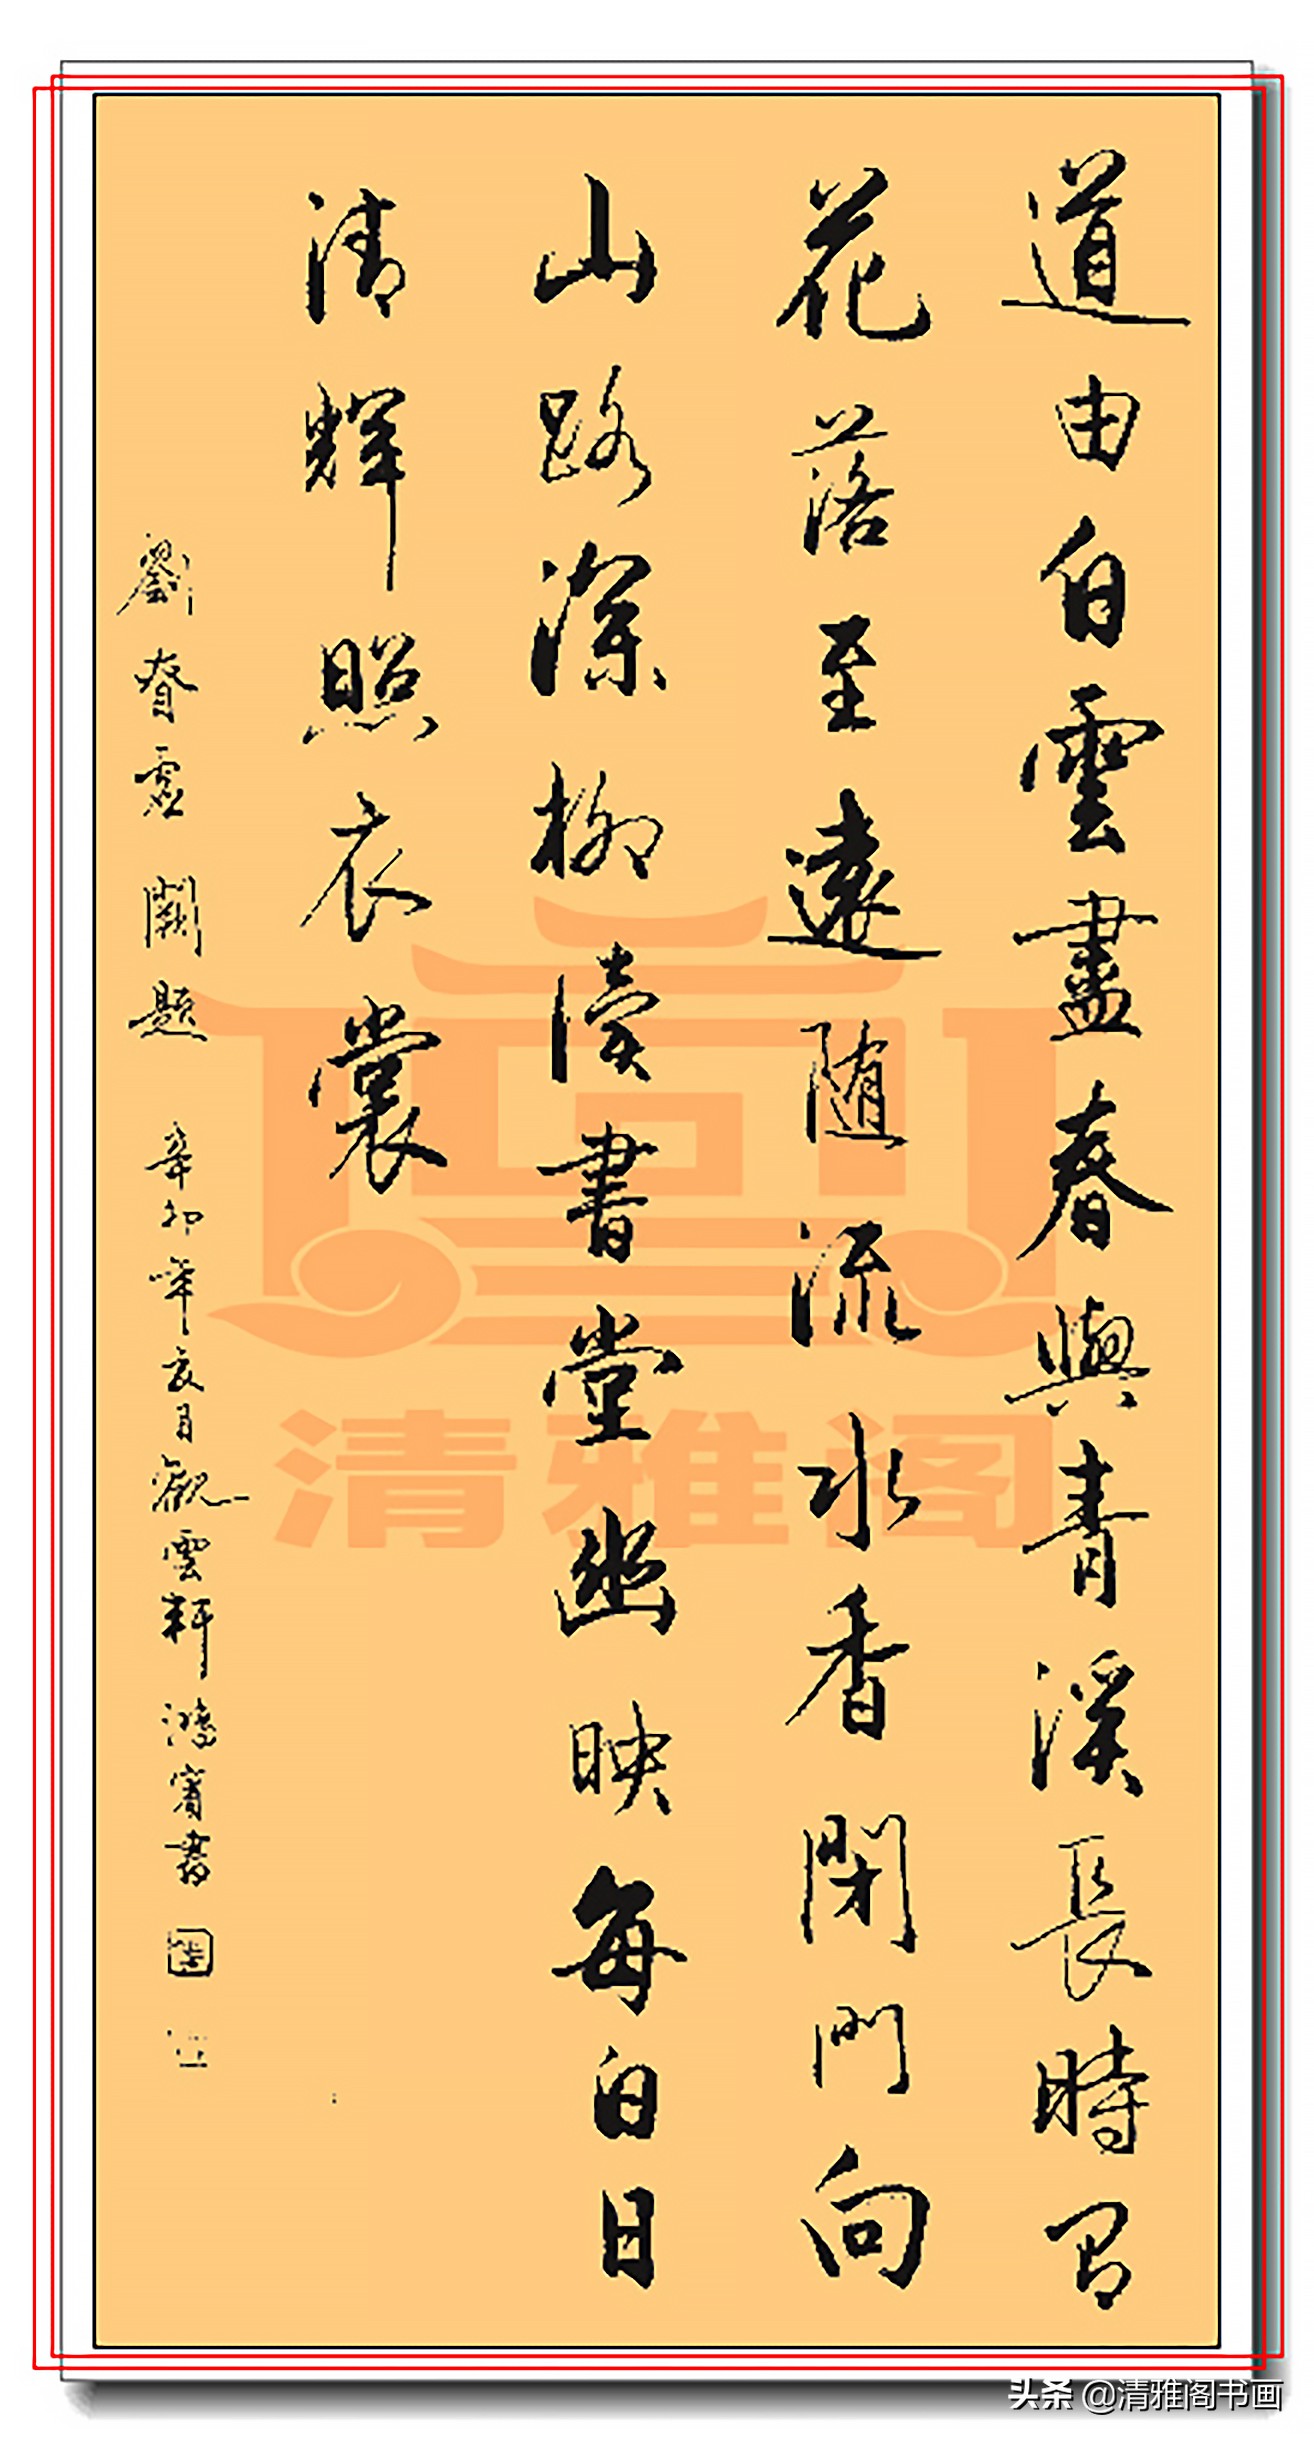 道由白雲盡春與青溪長時有
花落至遠随流水香閉門向
山路深柳讀書堂幽映每白日
清輝照衣裳
劉眘虛 闕題 辛卯年亥月觀雲軒鴻賓書
清雅阁
头条 @清雅阁书画